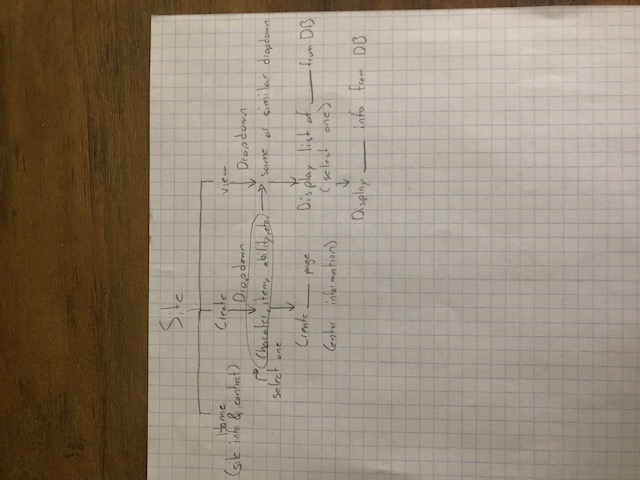 Site
Home
(site info & contact)
Create
Dropdown
(Charater, item, ability, etc)
select one
Create ___ page
(enter information)
view
Dropdown
same or similar dropdown
Display list of ___ from DB
(select one)
Display ___ info from DB